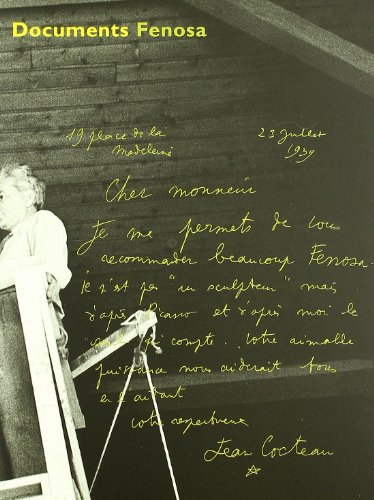 Documents Fenosa
19 place de la 23 Juillet
Madeleine 1939
Cher monsieur
Je me permets de vous
recommander beaucoup Fenosa.
Ce n'est pas "un sculpteur" mais
d'après Picasso et d'après moi le
qui compte. Votre aimable
puissance nous aiderait tous
en l'aidant
votre respectueux
Jean Cocteau